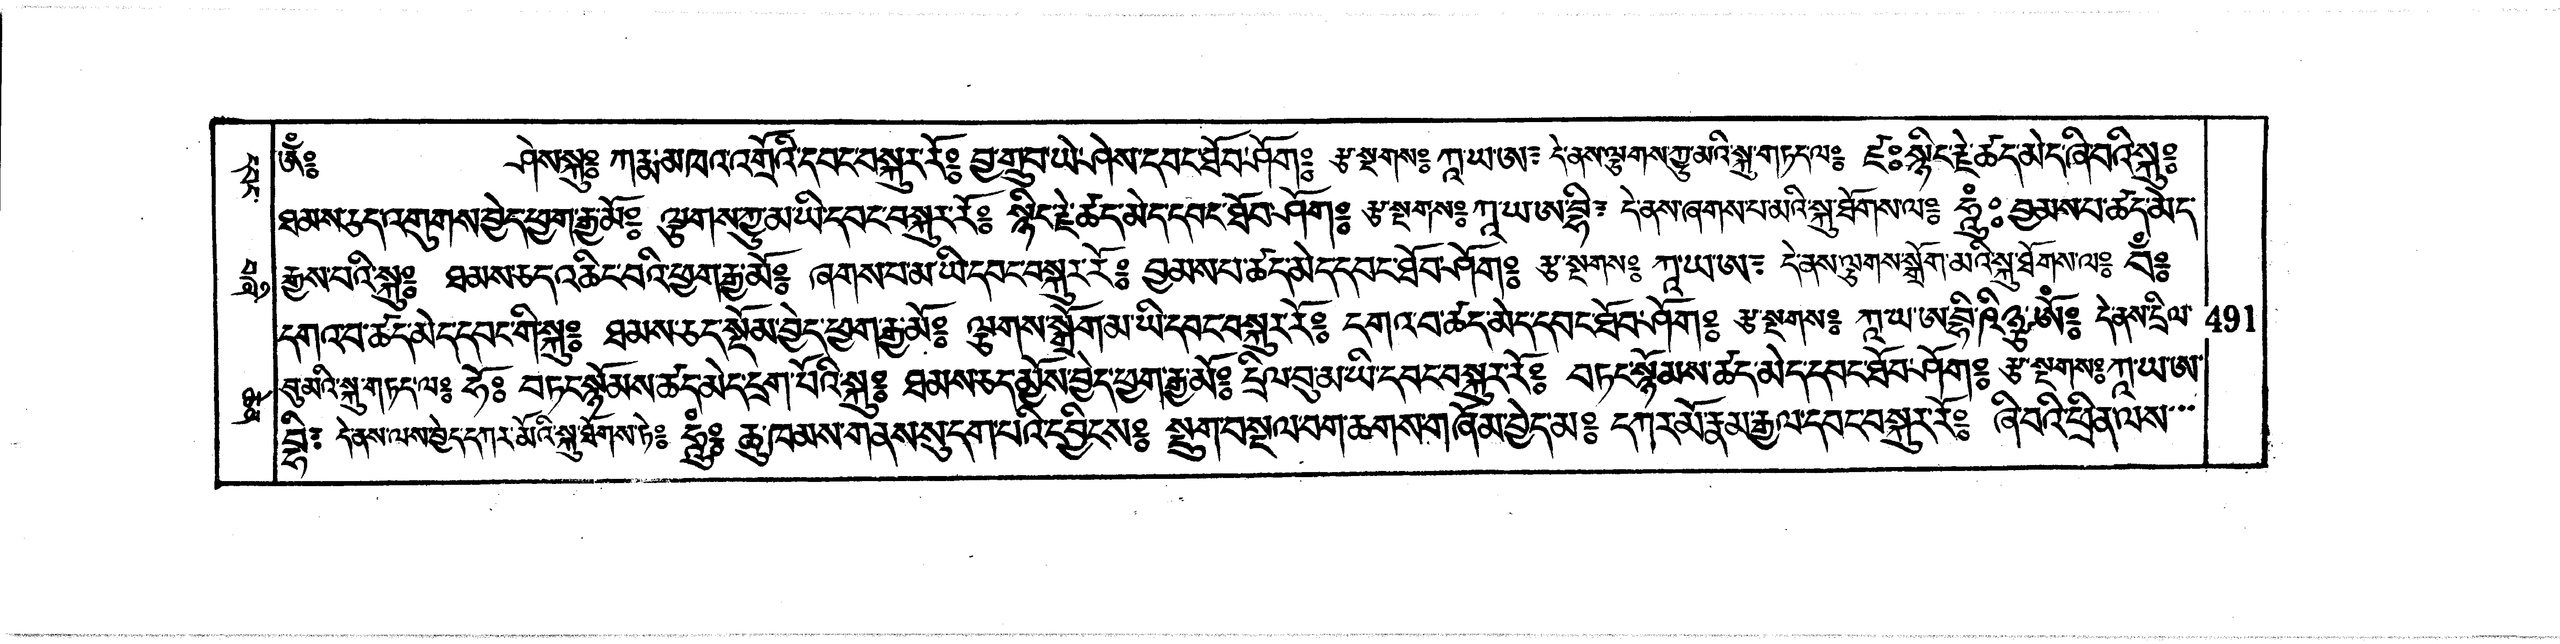 ཨོཾ༔ ཤེས་སྐུ༔ ཀརྨ་མཁའ་འགྲོའི་དབང་བསྐུར་རོ༔ བྱ་གྲུབ་ཡེ་ཤེས་དབང་ཐོབ་ཤོག༔ རྩ་སྔགས༔ ཀཱ་ཡ་ཨ༔ དེ་ནས་ལྕགས་ཀྱུ་མའི་སྐུ་གཏད་ལ༔ ཛཿ༔ སྙིང་རྗེ་ཚད་མེད་ཞི་བའི་སྐུ༔
ཐམས་ཅད་འགུགས་བྱེད་ཕྱག་རྒྱ་མོ༔ ལྕགས་ཀྱུ་མ་ཡི་དབང་བསྐུར་རོ༔ སྙིང་རྗེ་ཚད་མེད་དབང་ཐོབ་ཤོག༔ རྩ་སྔགས༔ ཀཱ་ཡ་ཨ་བྷི༔ དེ་ནས་ཞགས་པ་མའི་སྐུ་ཐོགས་ལ༔ ཧཱུྃ༔ བྱམས་པ་ཚད་མེད
རྒྱས་པའི་སྐུ༔ ཐམས་ཅད་འཆིང་བའི་ཕྱག་རྒྱ་མོ༔ ཞགས་པ་མ་ཡི་དབང་བསྐུར་རོ༔ བྱམས་པ་ཚད་མེད་དབང་ཐོབ་ཤོག༔ རྩ་སྔགས༔ ཀཱ་ཡ་ཨ༔ དེ་ནས་ལྕགས་སྒྲོག་མའི་སྐུ་ཐོགས་ལ༔ བཾ༔
དགའ་བ་ཚད་མེད་དབང་གི་སྐུ༔ ཐམས་ཅད་སྡོམ་བྱེད་ཕྱག་རྒྱ་མོ༔ ལྕགས་སྒྲོག་མ་ཡི་དབང་བསྐུར་རོ༔ དགའ་བ་ཚད་མེད་དབང་ཐོབ་ཤོག༔ རྩ་སྔགས༔ ཀཱ་ཡ་ཨ་བྷི་ཥིཉྩ་ཨོཾ༔ དེ་ནས་དྲིལ 491
བུ་མའི་སྐུ་གཏད་ལ༔ ཧོ༔ བཏང་སྙོམས་ཚད་མེད་དྲག་པོའི་སྐུ༔ ཐམས་ཅད་མྱོས་བྱེད་ཕྱག་རྒྱ་མོ༔ དྲིལ་བུ་མ་ཡི་དབང་བསྐུར་རོ༔ བཏང་སྙོམས་ཚད་མེད་དབང་ཐོབ་ཤོག༔ རྩ་སྔགས༔ ཀཱ་ཡ་ཨ
བྷི༔ དེ་ནས་ལས་བྱེད་དཀར་མོའི་སྐུ་ཐོགས་ཏེ༔ ཧཱུྃ༔ ཆུ་ཁམས་གནས་སུ་དག་པའི་དབྱིངས༔ སྡུག་བསྔལ་བག་ཆགས་གཞོམ་བྱེད་མ༔ དཀར་མོ་རྣམ་རྒྱལ་དབང་བསྐུར་རོ༔ ཞི་བའི་ཕྲིན་ལས་